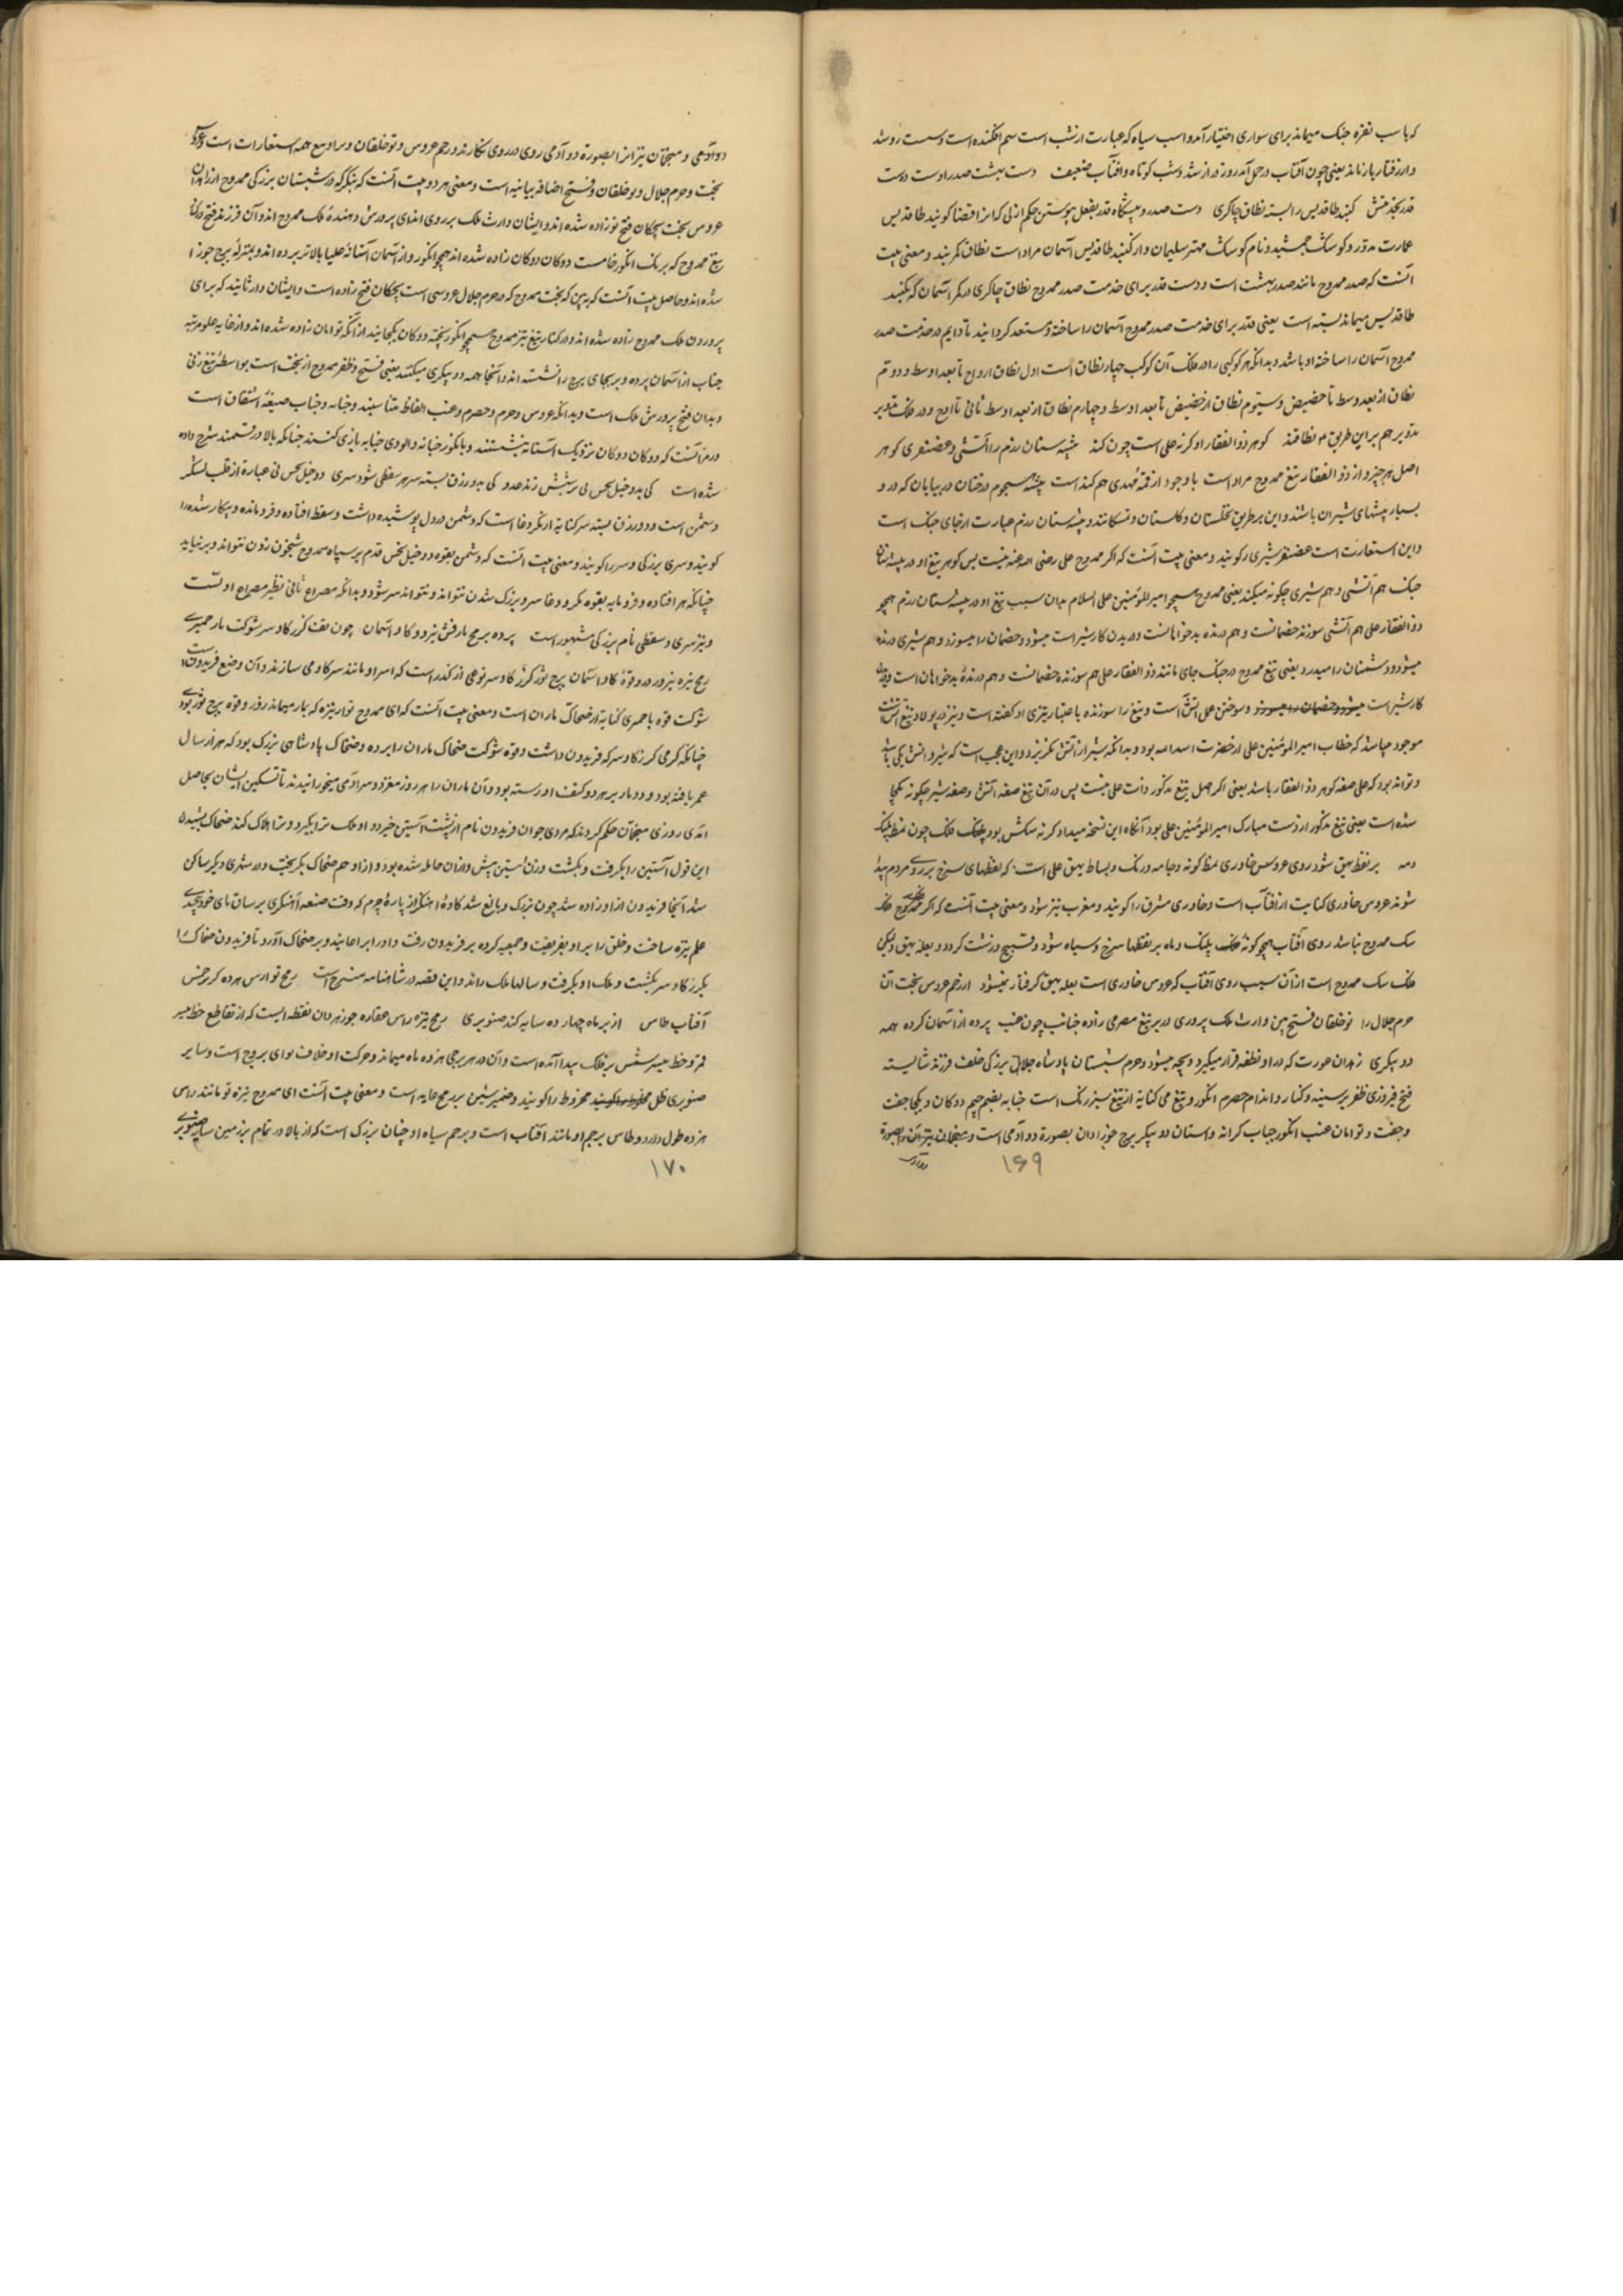 که باسب نقره خنک میماند برای سواری اختیار آمد و اسب سیاه که عبارت از شب است سم افکنده است و سست رو شد
و از رفتار باز ماند یعنی چون آفتاب در حمل آمد روز دراز شد و شب کوتاه و آفتاب ضعیف دست بهشت صدر او ست دست
قدر بخدمتش گنبد طاقدیس را بسته نطاق چاکری دست صدر و پیشگاه قدر بفعل پیوستن حکم ازلی که آنرا قضا گویند طاقدیس
عمارت مدور و کوشک جمشید و نام کوشک مهتر سلیمان و از گنبد طاقدیس آسمان مراد است نطاق کمربند و معنی بیت
آنست که صدر ممدوح مانند صدر بهشت است و دست قدر برای خدمت صدر ممدوح نطاق چاکری در کمر آسمان که بگنبد
طاقدیس میماند بسته است یعنی قدر برای خدمت صدر ممدوح آسمان را ساخته و مستعد گردانید تا دایم در خدمت صدر
ممدوح آسمان را ساخته او باشد و بدانکه هر کوکبی را در فلک آن کوکب چهار نطاق است اول نطاق از اوج تا بعد اوسط و دوم
نطاق از بعد اوسط تا حضیض و سیوم نطاق از حضیض تا بعد اوسط و چهارم نطاق از بعد اوسط ثانی تا اوج و در فلک تدویر
تدویر هم بر این طریق ۴ نطاقند گوهر ذو الفقار او گرنه علی است چون کند بیشه ستان رزم را آتشی و غضنفری گوهر
اصل هر چیز و از ذو الفقار تیغ ممدوح مراد است باوجود بیشه هجوم درختان در بیابان که در و
بسیار بیشهای شیران باشند و این بر طریق نخلستان و گلستان و بیشه ستان رزم عبارت از جای جنگ است
و این استعارت است غضنفر شیر را گویند و معنی بیت آنست که اگر ممدوح علی رضی الله عنه نیست پس گوهر تیغ او در بیشه ستان
جنگ هم آتشی و هم شیری چگونه میکند یعنی ممدوح همچو امیر المؤمنین علی علیه السلام بدان سبب تیغ او در بیشه ستان رزم همچو
ذو الفقار علی هم آتشی سوزنده خصمانست و هم درنده بدخواهانست و دریدن کار شیر است میشود و خصمان را میسوزد و هم شیری درنده
میشود و دشمنان را میدرد یعنی تیغ ممدوح در جنگ جای مانند ذو الفقار علی هم سوزنده خصمانست و هم درندهٔ بدخواهان است
کار شیر است و سوختن عمل آتش است و تیغ را سوزنده باعتبار تیزی او گفته است و نیز در پولاد تیغ آتش
موجود میباشد که خطاب امیر المؤمنین علی از حضرت اسد الله بود و بدانکه شیر از آتش بگریزد و این عجب است که شیر و آتش یکی باشد
و تواند بود که علی صفه گوهر ذو الفقار باشد یعنی اگر اصل تیغ مذکور ذات علی نیست پس در آن تیغ صفه آتش و صفه شیر چگونه یکجا
شده است یعنی تیغ مذکور از دست مبارک امیر المؤمنین علی بود آنگاه این نتیجه میداد گرنه سگش بود پلنگ فلک چون نمط پلنگ
و مه بر نقط بهق شود روی عروس خاوری نمط گونه و جامه دورنگ و بساط بهق علی است که نقطهای سرخ بر روی مردم پیدا
شوند عروس خاوری کنایت از آفتاب است و خاوری مشرق را گویند و مغرب نیز شود و معنی بیت آنست که اگر فلک
سگ ممدوح نباشد روی آفتاب همچو گونهٔ پلنگ و ماه بر نقطها سرخ و سیاه شود و قبیح و زشت گردد و بعله بهق ولیکن
فلک سگ ممدوح است از آن سبب روی آفتاب که عروس خاوری است بعله بهق گرفتار نمیشود از رحم عروس بخت آن
حرم جلال را نوخلقان فتح بین وارث ملک پروری در بر تیغ حصرمی زاده چون عنب پرده از آسمان کرده همه
دو پیکری زهدان عورت که در او نطفه قرار میگیرد و بچه میشود و حرم شبستان پادشاه جلال بزرگی خلف فرزند شایسته
فتح فیروزی ظفر بر سینه و کنار و اندام حصرم انگور و تیغ می کنایه از تیغ سبز رنگ است بضم جیم دوگان و یکجا جفت
و جفت و توامان عنب انگور جناب کرانه و آستان دو پیکر برج جوزا دان بصورة دو آدمی است و منجمان نیز آن را بصورة
دو آدمی
۱۶۹
دو آدمی و منجمان نیز آنرا بصورة دو آدمی روی در روی نگارند و رحم عروس و نوخلقان همه استعارات است
بخت و حرم جلال و نوخلقان و فتح اضافه بیانیه است و معنی هر دو بیت آنست که بنگر که در شبستان بزرگی ممدوح از زهدان
عروس بخت بچگان فتح نو زاده شده اند و ایشان وارث ملک پروری اند ای پرورش دهندهٔ ملک ممدوح اند و آن فرزند فتح در کنار
تیغ ممدوح که برنگ انگور خامست دوگان دوگان زاده شده اند همچو انگور و از آسمان آستانهٔ علیا بالاتر برده اند و بمنزلهٔ برج جوزا
شده اند و حاصل بیت آنست که ببین که بخت ممدوح که در حرم جلال عروسی است بچگان فتح زاده است و ایشان وارثانند که برای
پروردن ملک ممدوح زاده شده اند و در کنار تیغ تیز ممدوح همچو انگور پخته دوگان یکجانند از آنکه توامان زاده شده اند و از غایه علو مرتبه
جناب از آسمان برده و بر بجای برج را نشسته اند و آنجا همه دو پیکری میکنند یعنی فتح و ظفر ممدوح از بخت است بواسطهٔ تیغ زنی
و بدان فتح پرورش ملک است و بدانکه عروس و حرم و حصرم و عنب الفاظ متناسبند و جنابه و جناب صیغهٔ اشتقاق است
و رمز آنست که دوگان دوگان نزدیک آستانه بنشستند و بانگور جنابه و الودی جنابه بازی کنند چنانکه بالا در قسمند شرح داده
شده است کی بدو خیل نحس پی بر شبش زند عدو کی بدو رزق بسته سر هر سقطی شود سری دو خیل نحس پی عبارة از قلب لشکر
دشمن است و دو رزق بسته سر کنایه از مکر و دغا است که دشمن در دل پوشیده داشت و سقط افتاده و فرومانده و بیکار شده را
گویند و سری بزرگی و سر را گویند و معنی بیت آنست که دشمن بقوه دو خیل نحس قدم بر سپاه ممدوح شبخون زدن نتواند و بر نیاید
چنانکه هر افتاده و فرومایه بقوه مکر و دغا سر و بزرگ شدن نتواند و نتواند سر شود و بدانکه مصراع ثانی نظیر مصراع اولست
و نیز سری و سقطی نام بزرگی مشهور است برده برمح مارفش نیرو گاو آسمان چون تف گرز گاوسر شوکت مار حمیری
رمح نیزه نیرو زور و قوه گاو آسمان برج ثور گرز گاوسر نوعی از گذر است که او سر او مانند سر گاو می سازند و آن وضع فریدون است
شوکت قوه با حمیری کنایه از ضحاک ماران است و معنی بیت آنست که ای ممدوح تو از نیزه که بمار میماند زور و قوه برج ثور بود
چنانکه گرمی گرز گاوسر که فریدون داشت و قوه شوکت ضحاک ماران را برده و ضحاک پادشاهی بزرگ بود که هزار سال
عمر یافته بود و دو مار بر هر دو کتف او رسته بود و آن ماران را هر روز مغز دو سر آدمی میخورانیدند تا تسکین ایشان بحاصل
آمدی روزی منجمان حکم کردند که مردی جوان فریدون نام از پشت آبتین خیزد و او ملک ترا بگیرد و ترا هلاک کند ضحاک بشنیدن
این قول آبتین را بگرفت و بکشت و زن آبتین پیش از آن حامله شده بود و از او هم ضحاک بگریخت و در شهری دیگر ساکن
شد آنجا فریدون از او زاده شد چون بزرگ و بالغ شد کاوهٔ آهنگر از پارهٔ چرم که وقت صنعه آهنگری بر ساق پای خود پیچیدی
علم نیزه ساخت و خلق را بر او بفریفت و جمعیه کرده بر فریدون رفت و او را بر ضحاک آورد تا فریدون ضحاک را
بگرز گاوسر بکشت و ملک او بگرفت و سالها ملک راند و این قصه در شاهنامه مشرح است رمح تو راس هرده گر برجش
آفتاب طاس از بر ماه چهارده سایه کند صنوبری رمح نیزه راس عقده جوزهر دان نقطه ایست که از تقاطع خط سیر
قمر و خط سیر شمس بر فلک پیدا آمده است و آن در هر برجی هژده ماه میماند و حرکت او خلاف توای بروج است و سایر
صنوبری ظل مخروط را گویند و ضمیر شین بر رمح عایه است و معنی بیت آنست ای ممدوح نیزه تو مانند راس
هزده طول دارد و طاس پرچم او مانند آفتاب است و پرچم سیاه او چنان بزرگ است که از بالا در تمام بر زمین سایه صنوبری
۱۷۰